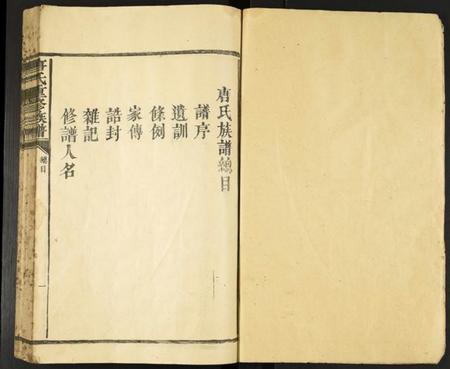 唐氏族譜總目
譜序
遺訓
條例
家傳
誥封
雜記
修譜人名
總目
一